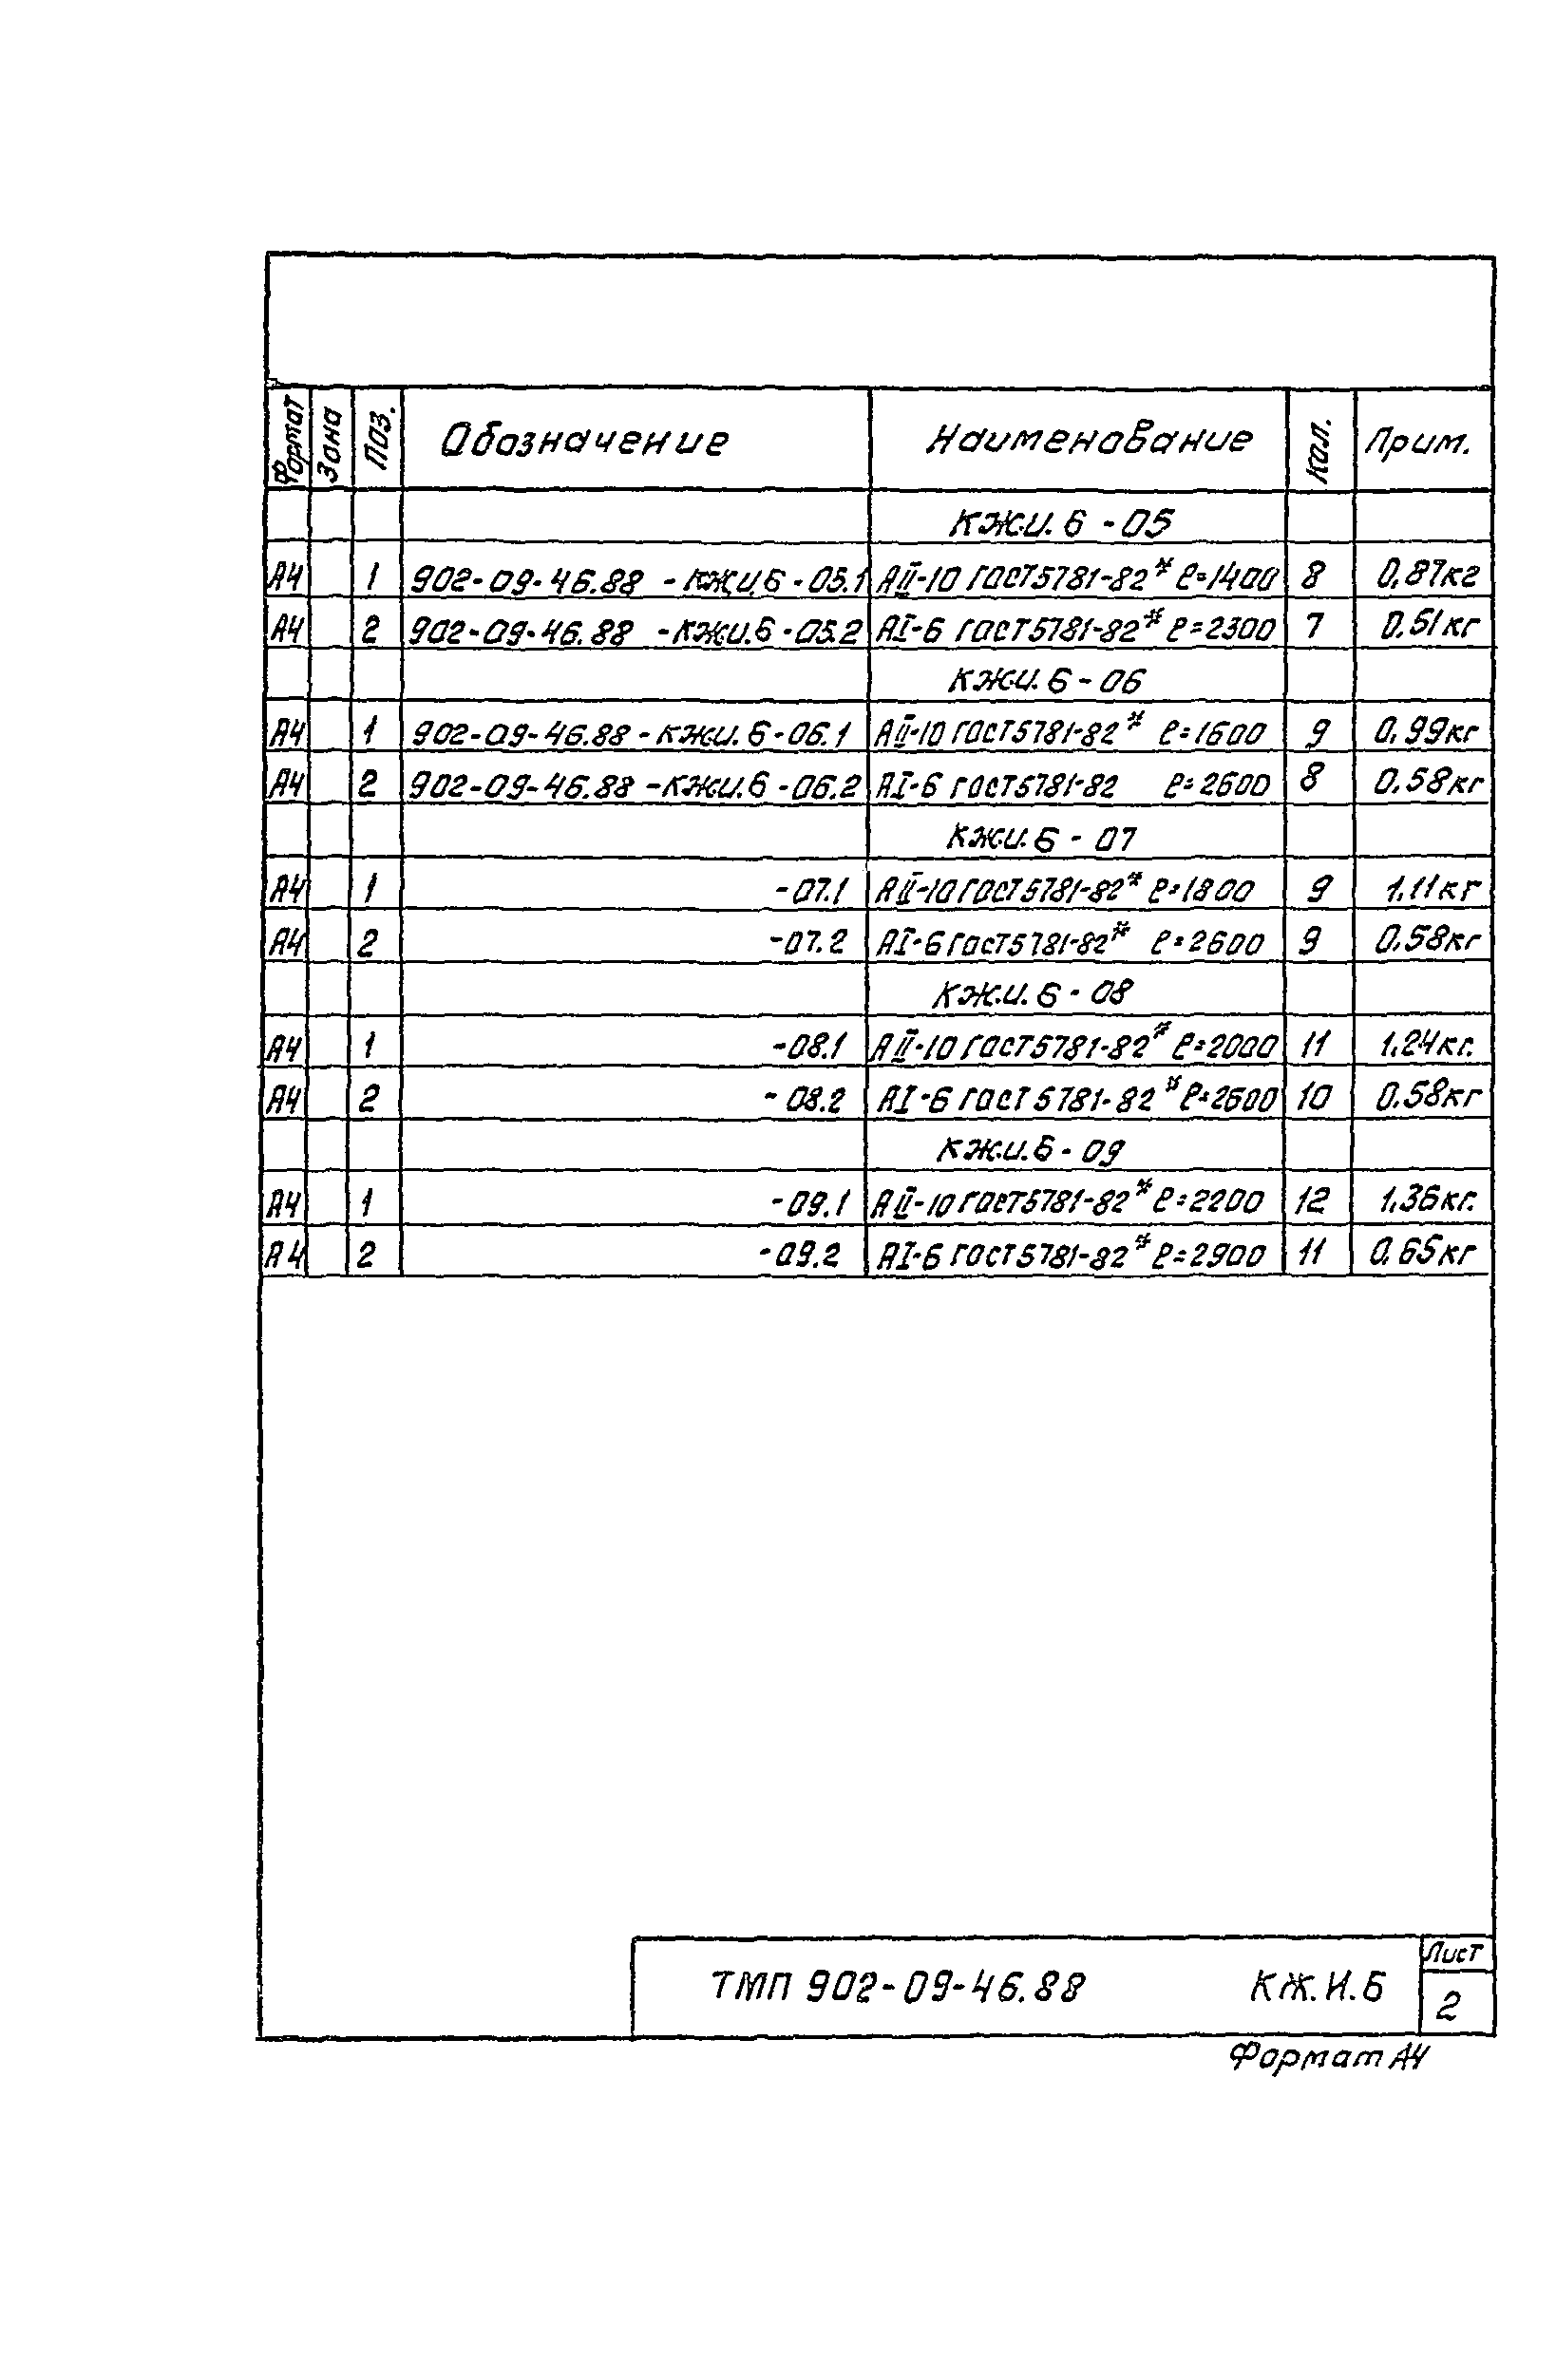 Формат Зона Поз. Обозначение Наименование Кол. Прим.
КЖ.И.6 -05
А4 1 902-09-46.88 -КЖ.И.6-05.1 АII-10 ГОСТ 5781-82* ℓ=1400 8 0,87кг
А4 2 902-09-46.88 -КЖ.И.6-05.2 АI-6 ГОСТ 5781-82* ℓ=2300 7 0.51кг
КЖ.И.6-06
А4 1 902-09-46.88-КЖ.И.6-06.1 АII-10 ГОСТ 5781-82* ℓ=1600 9 0,99кг
А4 2 902-09-46.88-КЖ.И.6-06.2 АI-6 ГОСТ 5781-82 ℓ=2600 8 0.58кг
КЖ.И.6-07
А4 1 -07.1 АII-10 ГОСТ 5781-82* ℓ=1800 9 1.11кг
А4 2 -07.2 АI-6 ГОСТ 5781-82* ℓ=2600 9 0.58кг
КЖ.И.6-08
А4 1 -08.1 АII-10 ГОСТ 5781-82* ℓ=2000 11 1.24кг.
А4 2 -08.2 АI-6 ГОСТ 5781-82* ℓ=2600 10 0.58кг
КЖ.И.6-09
А4 1 -09.1 АII-10 ГОСТ 5781-82* ℓ=2200 12 1,36кг.
А4 2 -09.2 АI-6 ГОСТ 5781-82* ℓ=2900 11 0.65кг
ТМП 902-09-46.88 КЖ.И.6
Лист
2
Формат А4